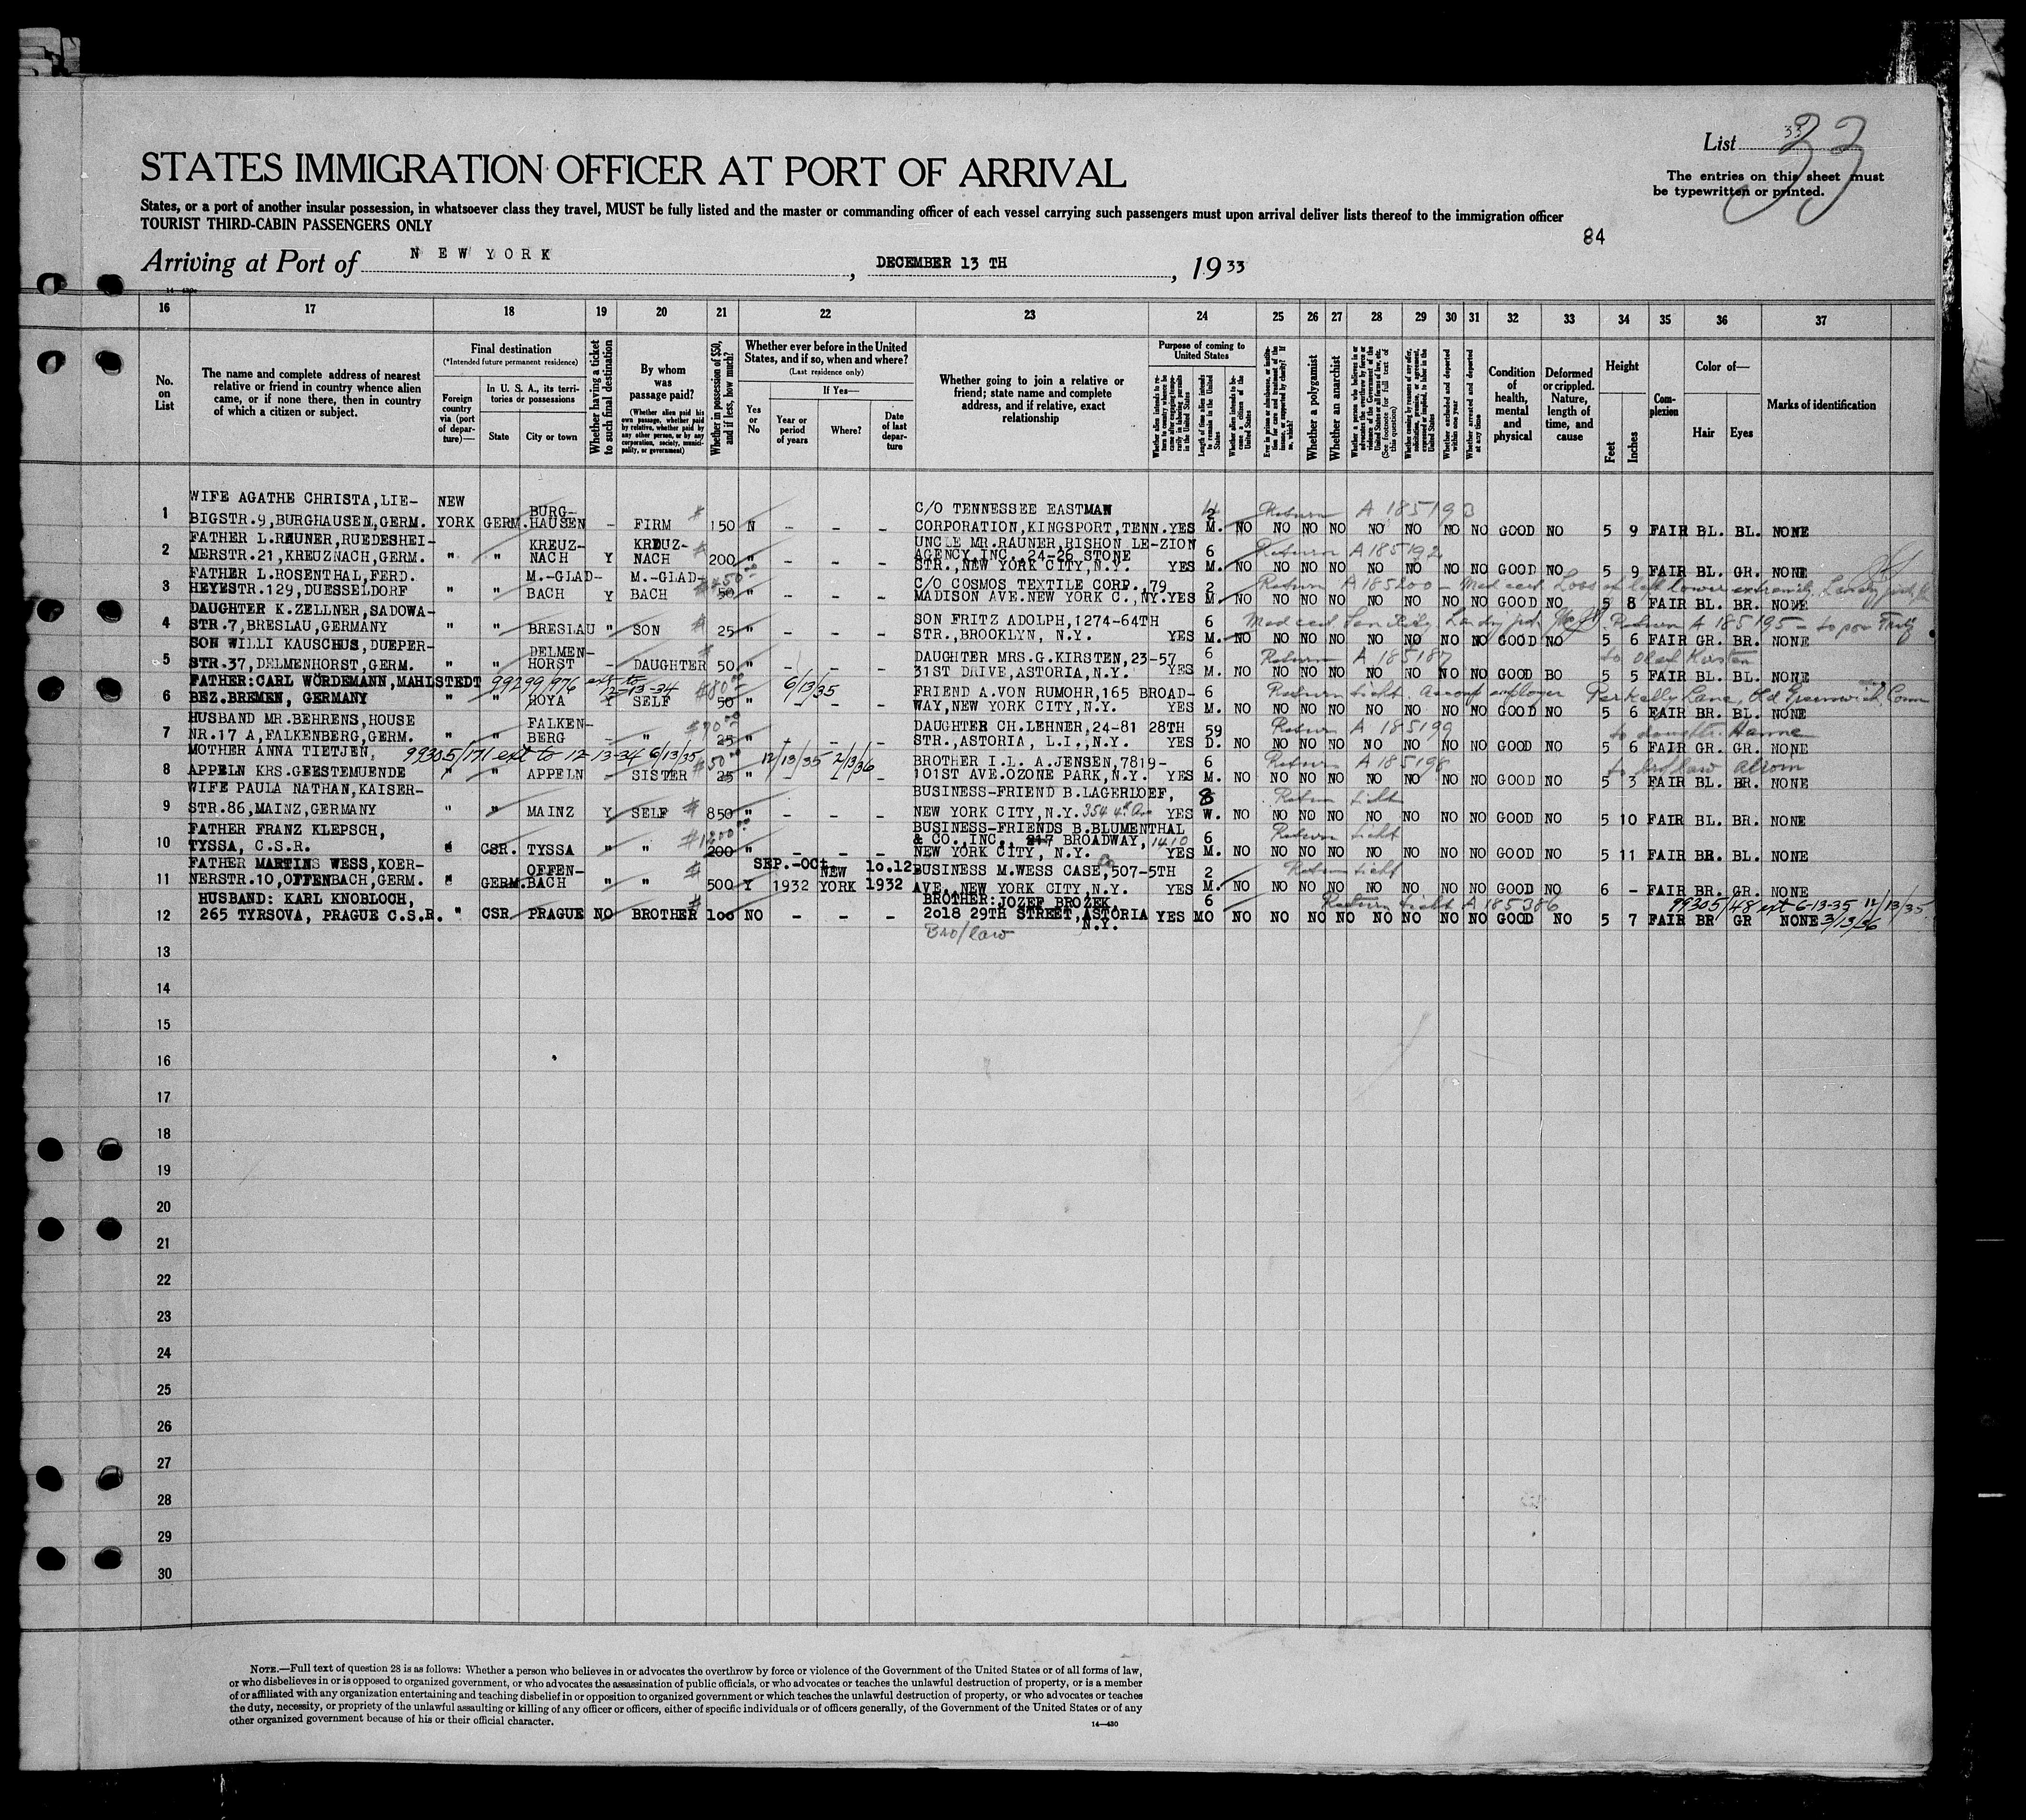 List 33
33
STATES IMMIGRATION OFFICER AT PORT OF ARRIVAL
The entries on this sheet must
be typewritten or printed.
States, or a port of another insular possession, in whatsoever class they travel, MUST be fully listed and the master or commanding officer of each vessel carrying such passengers must upon arrival deliver lists thereof to the immigration officer
TOURIST THIRD-CABIN PASSENGERS ONLY
84
Arriving at Port of NEW YORK, DECEMBER 13 TH, 19 33
16 17 18 19 20 21 22 23 24 25 26 27 28 29 30 31 32 33 34 35 36 37
No. on List
The name and complete address of nearest
relative or friend in country whence alien
came, or if none there, then in country
of which a citizen or subject.
Final destination
(*Intended future permanent residence)
Foreign country via (port of departure)—
In U. S. A., its territories or possessions
State
City or town
Whether having a ticket to such final destination
By whom was passage paid?
(Whether alien paid his own passage, whether paid by relative, whether paid by any other person, or by any corporation, society, municipality, or government)
Whether in possession of $50, and if less, how much?
Whether ever before in the United States, and if so, when and where?
(Last residence only)
Yes or No
If Yes—
Year or period of years
Where?
Date of last departure
Whether going to join a relative or
friend; state name and complete
address, and if relative, exact
relationship
Purpose of coming to United States
Length of time alien intends to remain in the United States
Whether alien intends to become a citizen of the United States
Whether a polygamist
Whether an anarchist
(See footnote for full text of this question)
Whether excluded and deported within one year
Whether arrested and deported at any time
Condition of health, mental and physical
Deformed or crippled. Nature, length of time, and cause
Height
Feet
Inches
Complexion
Color of—
Hair
Eyes
Marks of identification
WIFE AGATHE CHRISTA,LIE- NEW BURG- C/O TENNESSEE EASTMAN Return A 185193
1 BIGSTR.9,BURGHAUSEN,GERM. YORK GERM. HAUSEN - FIRM 150 N - - - CORPORATION,KINGSPORT,TENN. YES M. NO NO NO NO NO NO NO NO GOOD NO 5 9 FAIR BL. BL. NONE
FATHER L.RAUNER,RUEDESHEI- KREUZ- KREUZ- UNCLE MR.RAUNER,RISHON LE-ZION
2 MERSTR.21,KREUZNACH,GERM. " " NACH Y NACH 200 " - - - AGENCY,INC., 24-26 STONE 6 Return A 185192
STR.,NEW YORK CITY,N.Y. YES M. NO NO NO NO NO NO NO NO GOOD NO 5 9 FAIR BL. GR. NONE
FATHER L.ROSENTHAL,FERD. M.-GLAD- M.-GLAD- C/O COSMOS TEXTILE CORP.,79 2 Return A 185200 - Med cert Loss of left lower extremity
3 HEYESTR.129,DUESSELDORF " " BACH Y BACH 50 " - - - MADISON AVE.NEW YORK C.,NY. YES M. NO NO NO NO NO NO NO NO GOOD NO 5 8 FAIR BL. BR. NONE
DAUGHTER K.ZELLNER,SADOWA- SON FRITZ ADOLPH,1274-64TH 6 Med cert Senility Return A 185195
4 STR.7,BRESLAU,GERMANY " " BRESLAU " SON 25 " - - - STR.,BROOKLYN, N.Y. YES M. NO NO NO NO NO NO NO NO GOOD NO 5 6 FAIR GR. BR. NONE
SON WILLI KAUSCHUS,DUEPER- DELMEN- DAUGHTER MRS.G.KIRSTEN,23-57 6 Return A 185187 to Olaf Kirsten
5 STR.37,DELMENHORST,GERM. " " HORST - DAUGHTER 50 " - - - 31ST DRIVE,ASTORIA,N.Y. YES M. NO NO NO NO NO NO NO NO GOOD BO 5 5 FAIR BL. BL. NONE
FATHER:CARL WÖRDEMANN,MAHLSTEDT 99299/976 ext to 12-13-34 $80 6/13/35 FRIEND A.VON RUMOHR,165 BROAD- 6 Return ticket. Accomp employer Old Greenwich, Conn
6 BEZ.BREMEN, GERMANY " " HOYA Y SELF 50 " - - - WAY,NEW YORK CITY,N.Y. YES M. NO NO NO NO NO NO NO NO GOOD NO 5 6 FAIR BR. BL. NONE
HUSBAND MR.BEHRENS,HOUSE FALKEN- $70 DAUGHTER CH.LEHNER,24-81 28TH 59 Return A 185199
7 NR.17 A,FALKENBERG,GERM. " " BERG - " 25 " - - - STR.,ASTORIA, L.I.,N.Y. YES D. NO NO NO NO NO NO NO NO GOOD NO 5 6 FAIR GR. GR. NONE
MOTHER ANNA TIETJEN, 99305/171 ext to 12-13-34 6/13/35 $50 12/13/35 2/13/36 BROTHER I.L. A.JENSEN,7819- 6 Return A 185198
8 APPELN KRS.GEESTEMUENDE " " APPELN - SISTER 25 " - - - 101ST AVE.OZONE PARK,N.Y. YES M. NO NO NO NO NO NO NO NO GOOD NO 5 3 FAIR BL. BR. NONE
WIFE PAULA NATHAN,KAISER- BUSINESS-FRIEND B.LAGERLOEF, 8 Return ticket
9 STR.86,MAINZ,GERMANY " " MAINZ Y SELF 850 " - - - NEW YORK CITY,N.Y. 354 4th Ave YES W. NO NO NO NO NO NO NO NO GOOD NO 5 10 FAIR BL. BR. NONE
FATHER FRANZ KLEPSCH, $1200 BUSINESS-FRIENDS B.BLUMENTHAL
10 TYSSA, C.S.R. CSR. TYSSA " " 200 " - - - & CO.,INC., 217 BROADWAY, 1410 6 Return ticket
NEW YORK CITY, N.Y. YES M. NO NO NO NO NO NO NO NO GOOD NO 5 11 FAIR BR. BL. NONE
FATHER MARTINS WESS, KOER- OFFEN- SEP.-OCT. NEW 10.12 BUSINESS M.WESS CASE,507-5TH 2 Return ticket
11 NERSTR.10,OFFENBACH,GERM. GERM. BACH " " 500 Y 1932 YORK 1932 AVE.,NEW YORK CITY,N.Y. YES M. NO NO NO NO NO NO NO NO GOOD NO 6 - FAIR BR. GR. NONE
HUSBAND: KARL KNOBLOCH, BROTHER:JOZEF BROZEK, 6 Return ticket A 185386 99305/48 ext 6-13-35 12/13/35
12 265 TYRSOVA, PRAGUE C.S.R. " CSR PRAGUE NO BROTHER 100 NO - - - 2018 29TH STREET,ASTORIA YES MO NO NO NO NO NO NO NO NO GOOD NO 5 7 FAIR BR GR NONE 3/13/36
N.Y.
Bro/law
13
14
15
16
17
18
19
20
21
22
23
24
25
26
27
28
29
30
NOTE.—Full text of question 28 is as follows: Whether a person who believes in or advocates the overthrow by force or violence of the Government of the United States or of all forms of law,
or who disbelieves in or is opposed to organized government, or who advocates the assassination of public officials, or who advocates or teaches the unlawful destruction of property, or is a member
of or affiliated with any organization entertaining and teaching disbelief in or opposition to organized government or which teaches the unlawful destruction of property, or who advocates or teaches
the duty, necessity, or propriety of the unlawful assaulting or killing of any officer or officers, either of specific individuals or of officers generally, of the Government of the United States or of any
other organized government because of his or their official character.
14—430